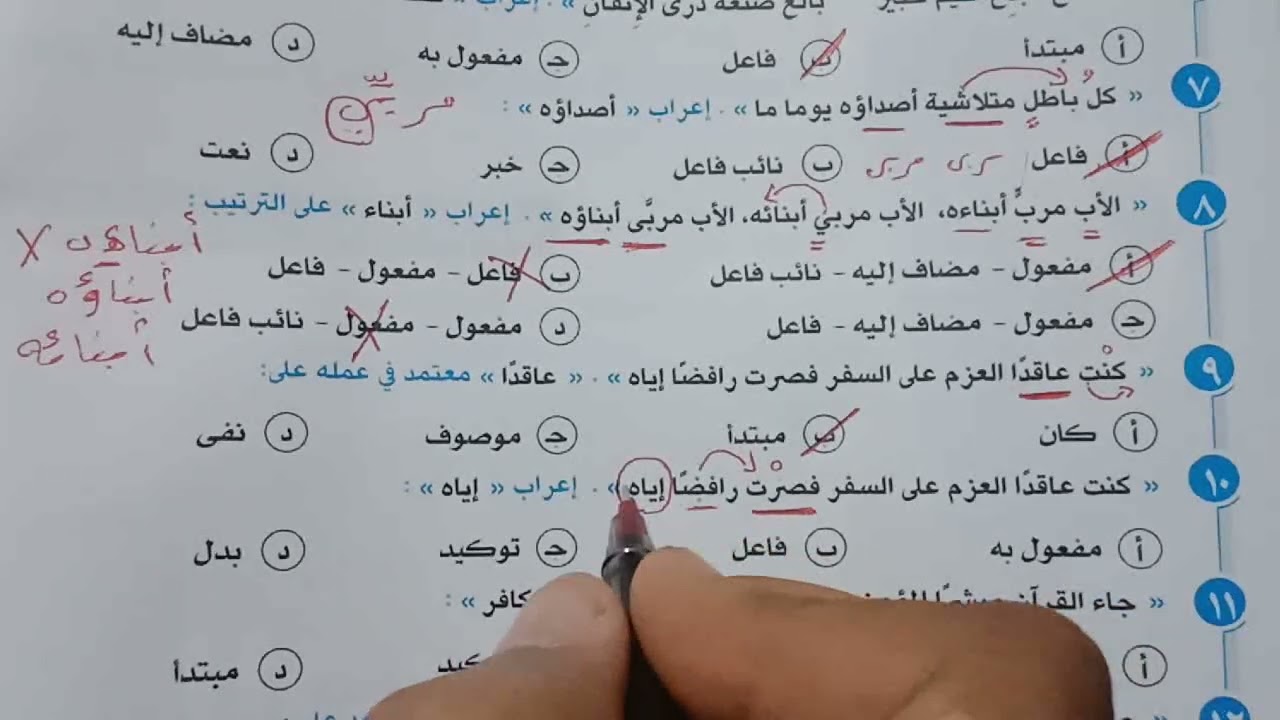 بالغ صنعة ذرى الإتقان » . إعراب «
أ مبتدأ ب فاعل جـ مفعول به د مضاف إليه
٧ « كلُ باطلٍ متلاشية أصداؤه يوما ما » . إعراب « أصداؤه » :
أ فاعل ب نائب فاعل جـ خبر د نعت
٨ « الأب مربٍّ أبناءه، الأب مربي أبنائه، الأب مربَّى أبناؤه » . إعراب « أبناء » على الترتيب :
أ مفعول - مضاف إليه - نائب فاعل ب فاعل - مفعول - فاعل
جـ مفعول - مضاف إليه - فاعل د مفعول - مفعول - نائب فاعل
أبناؤه
أبنائه
٩ « كنت عاقدًا العزم على السفر فصرت رافضًا إياه » . « عاقدًا » معتمد في عمله على:
أ كان ب مبتدأ جـ موصوف د نفى
١٠ « كنت عاقدًا العزم على السفر فصرت رافضًا إياه » . إعراب « إياه » :
أ مفعول به ب فاعل جـ توكيد د بدل
١١ « جاء القرآن كافر » :
أ د مبتدأ
١٢